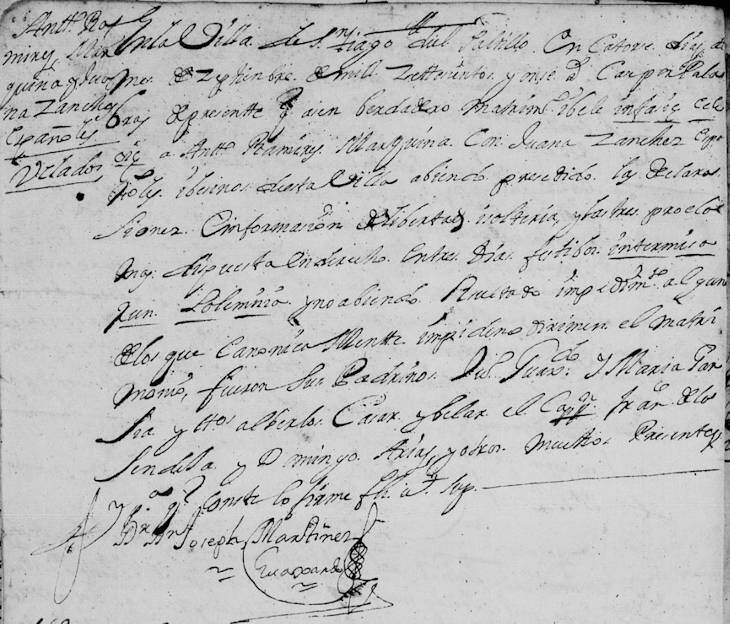 Antt.º Ra
mires, Mar
quina y Jua
na Zanches
Españoles
Velados
En la Villa de S.n tiago del Saltillo en Catorse dias del
mes de Zeptiembre de mill Zettesientos y onse a.s Case por Pala
bras de presentte q asen berdadero matrim.º ibele infasie ecle
cie a Antt.º Ramires Marquina con Juana Zanchez Espa
ñoles ibesinos desta Villa abiendo presedido las declara
siones e informasion de libertad isolteria, y las tres procla
mas dispuesta en derecho entres dias festibos intermisa
rum Solemnia y no abiendo Resultado impedim.to al guno
de los que canonica Mentte impiden o dirimen el matri
monio, fueron sus Padrinos Juº Guaxdo Y Maria Gar
sia y ttos alberlos Casar y belar el Capp.n fran.co de los
Sendela y Domingo Arias, y otros muchos Presentes
y p.a q conste lo firme fh a.t sup.
B.r Dn Joseph Martinez
Guaxardo